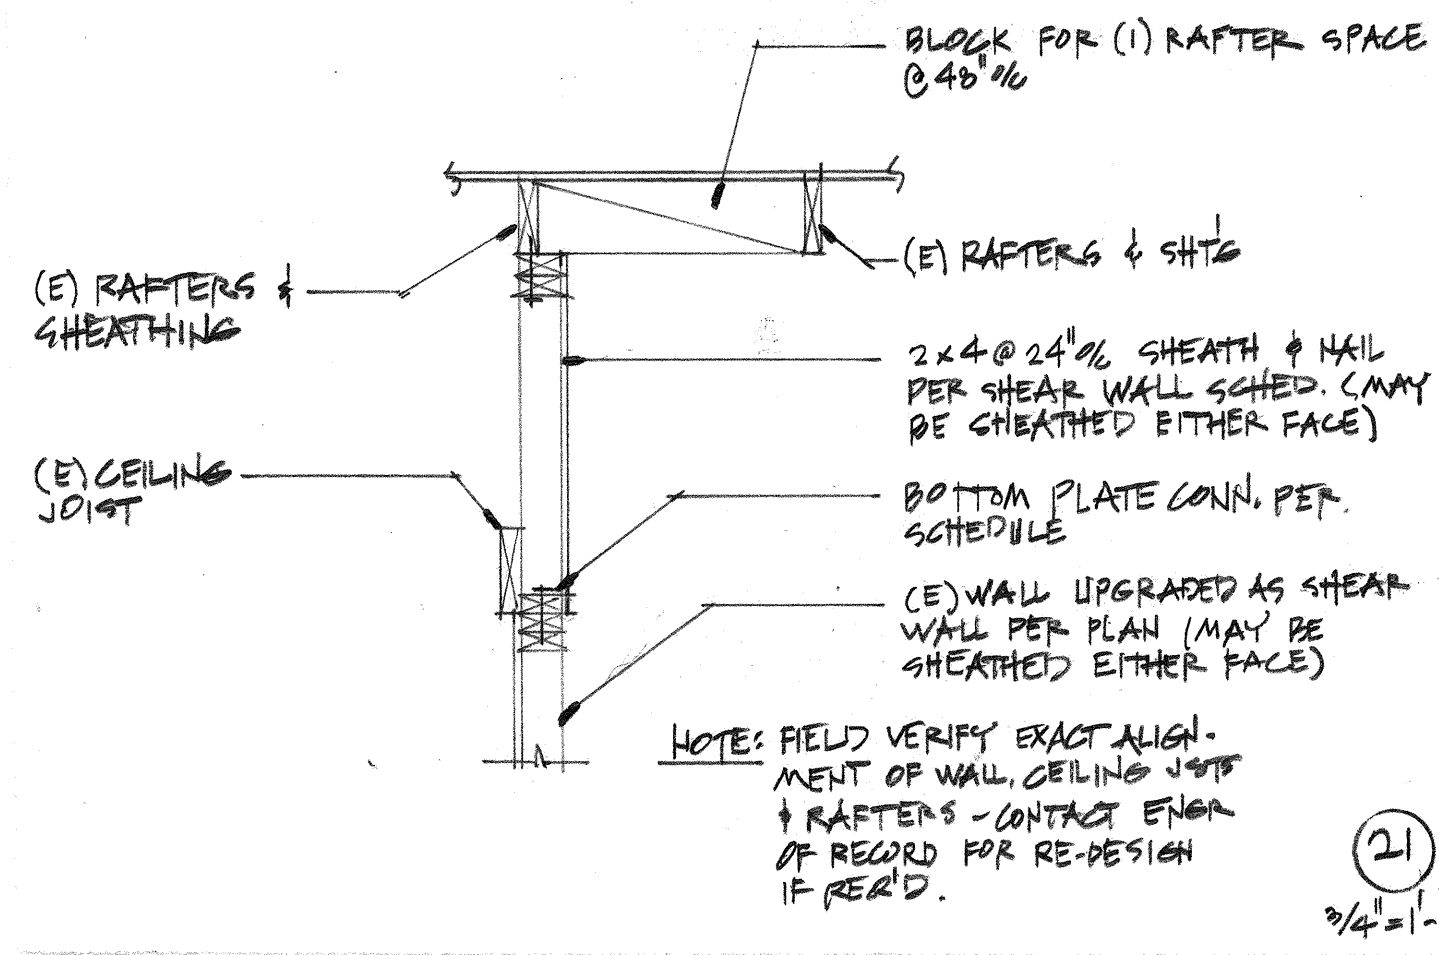 BLOCK FOR (1) RAFTER SPACE
@ 48" o/c
(E) RAFTERS &
SHEATHING
(E) RAFTERS & SHT'G
2 x 4 @ 24" o/c SHEATH & NAIL
PER SHEAR WALL SCHED. (MAY
BE SHEATHED EITHER FACE)
(E) CEILING
JOIST
BOTTOM PLATE CONN. PER
SCHEDULE
(E) WALL UPGRADED AS SHEAR
WALL PER PLAN (MAY BE
SHEATHED EITHER FACE)
NOTE: FIELD VERIFY EXACT ALIGN-
MENT OF WALL, CEILING JSTS
& RAFTERS - CONTACT ENGR
OF RECORD FOR RE-DESIGN
IF REQ'D.
21
3/4" = 1'-